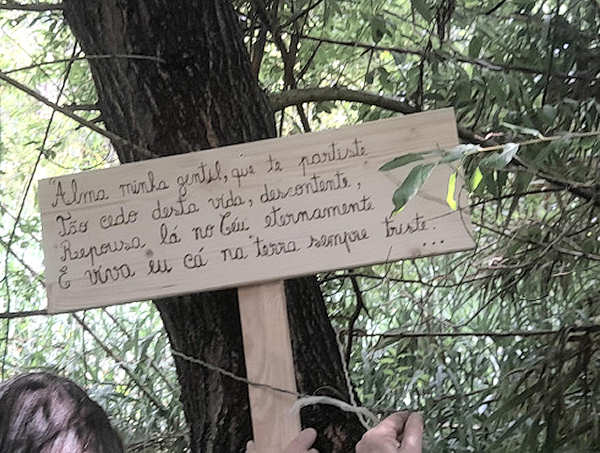 Alma minha gentil, que te partiste
Tão cedo desta vida, descontente,
Repousa lá no Céu eternamente
E viva eu cá na terra sempre triste.
...